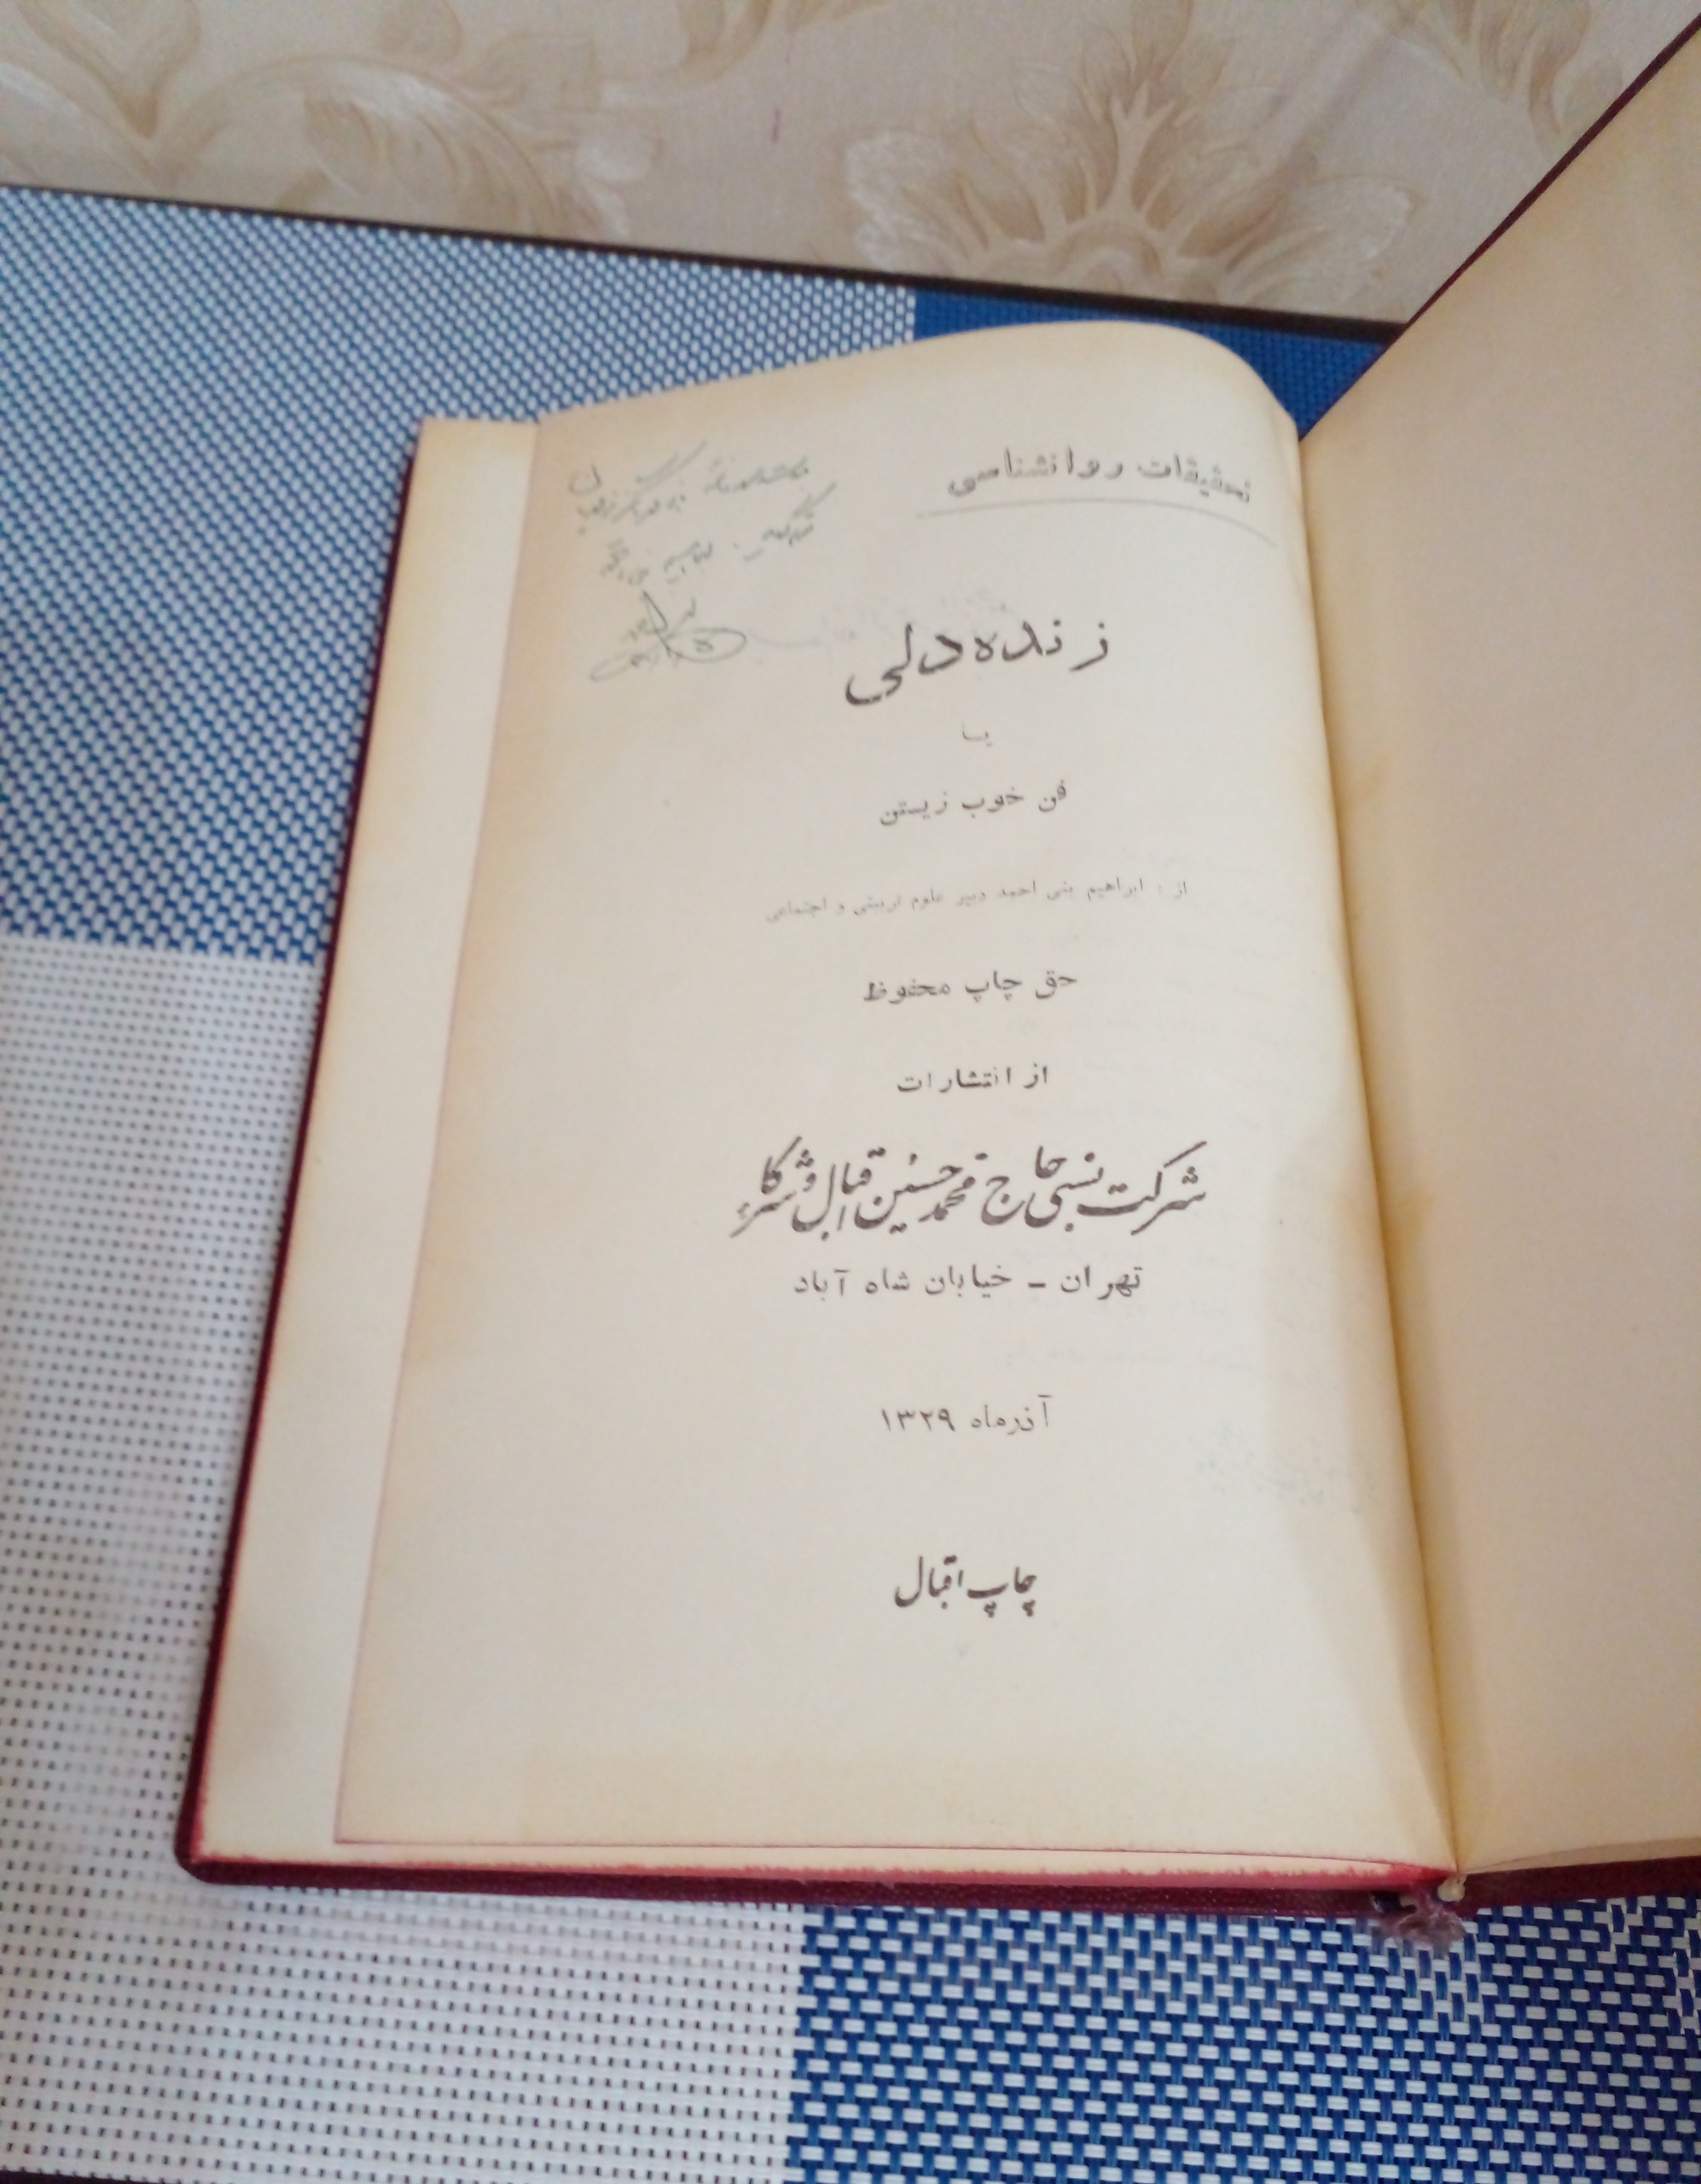 تحقیقات روانشناسی
زنده دلی
یا
فن خوب زیستن
از : ابراهیم بنی احمد دبیر علوم تربیتی و اجتماعی
حق چاپ محفوظ
از انتشارات
شرکت نسبی حاج محمد حسین اقبال و شرکاء
تهران - خیابان شاه آباد
آذرماه ۱۳۲۹
چاپ اقبال